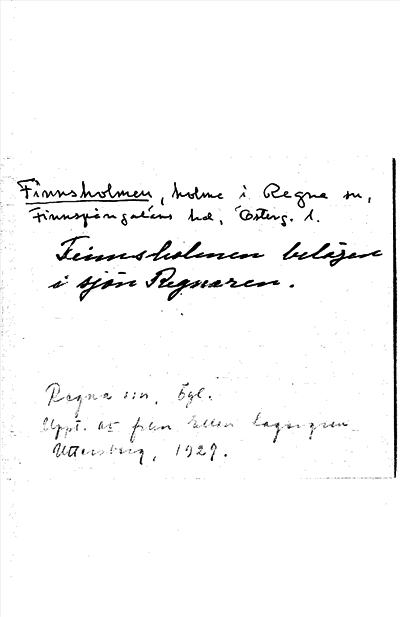 Finnsholmen, holme i Regna sn,
Finnspångaläns hd, Österg. l.
Finnsholmen belägen
i sjön Regnaren.
Regna sn, Ögl.
Uppt. av från Ellen Lagergren
Uttersberg, 1927.